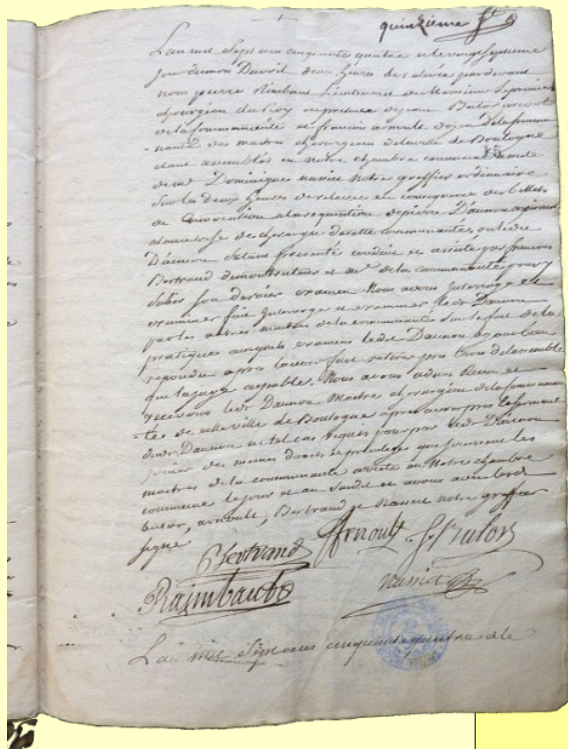 quinzieme f.t
L'an mil sept cens cinquante quatre et le vingt septieme
jour du mois Davril deux heures de relevée pardevant
nous pierre Raimbault Lieutenant de Monsieur Le premier
chirurgien du Roy en presence de jean Butor prevost
de la Communauté et francois arnoult doyen de la commu
nauté des maitres chirurgiens de la ville de Boulogne
etant assemblés en notre chambre commune
de me Dominique nassiet notre greffier ordinaire
sur les deux heures de relevée en consequence des billets
de Convocation a la requisition de pierre Daunou aspirant
a la maitrise de chirurgie de cette communauté, ou ledit
Daunou se seroit presenté conduit et assisté par francois
Bertrand demonstrateur et me de la communauté pour y
subir son dernier examen Nous avons interrogé et
examiner fait interroger et examiner ledt Daunou
par les autres maitres de la communauté sur le fait de la
pratique auxquels examens ledit Daunou ayant bien
repondu apres l'avoir fait retirer pris l'avis de l'assemblée
qui l'a jugé capable. Nous avons admis Receu et
recevons ledt Daunou Maitre chirurgien de la communau
té de cette ville de Boulogne apres avoir pris le serment
dudt Daunou en tel cas requis pour par ledt Daunou
jouir des mesmes droits et privileges que jouissent les
maitres de la communauté arreté en Notre chambre
commune le jour et an susdit et avons avec lesd
butor, arnoult, Bertrand et Nassiet notre greffier
signé
Bertrand Arnoult J. Butor
Raimbault nassiet
L'an mil sept cens cinquante quatre et le